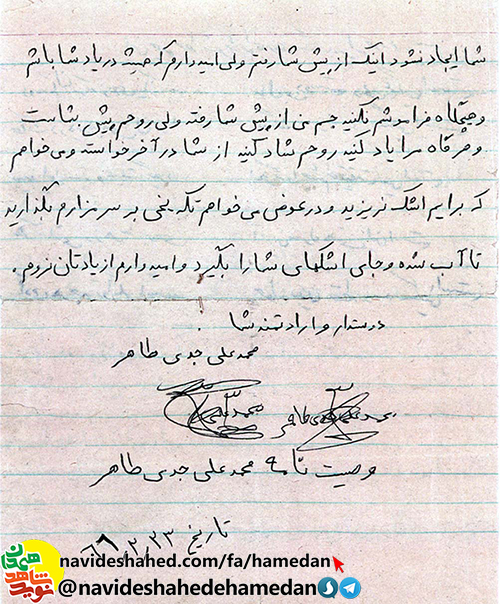 شما ایجاد نشود اینک از پیش شما رفتم ولی امیدوارم که همیشه در یاد شما باشم
وهیچگاه فراموشم نکنید جسم من از پیش شما رفته ولی روحم پیش شماست
و هرگاه مرا یاد کنید روحم شاد کنید از شما در آخر خواسته و می خواهم
که برایم اشک نریزید و در عوض می خواهم تکه یخی بر سر مزارم بگذارید
تا آب شده و جای اشکهای شما را بگیرد و امیدوارم از یادتان نروم.
دوستدار و ارادتمند شما
محمد علی جدی طاهر
محمد علی جدی طاهر محمد علی
وصیت نامه محمد علی جدی طاهر
تاریخ ۶۶,۲,۲۳
navideshahed.com/fa/hamedan
@navideshahedehamedan
نوید شاهد همدان